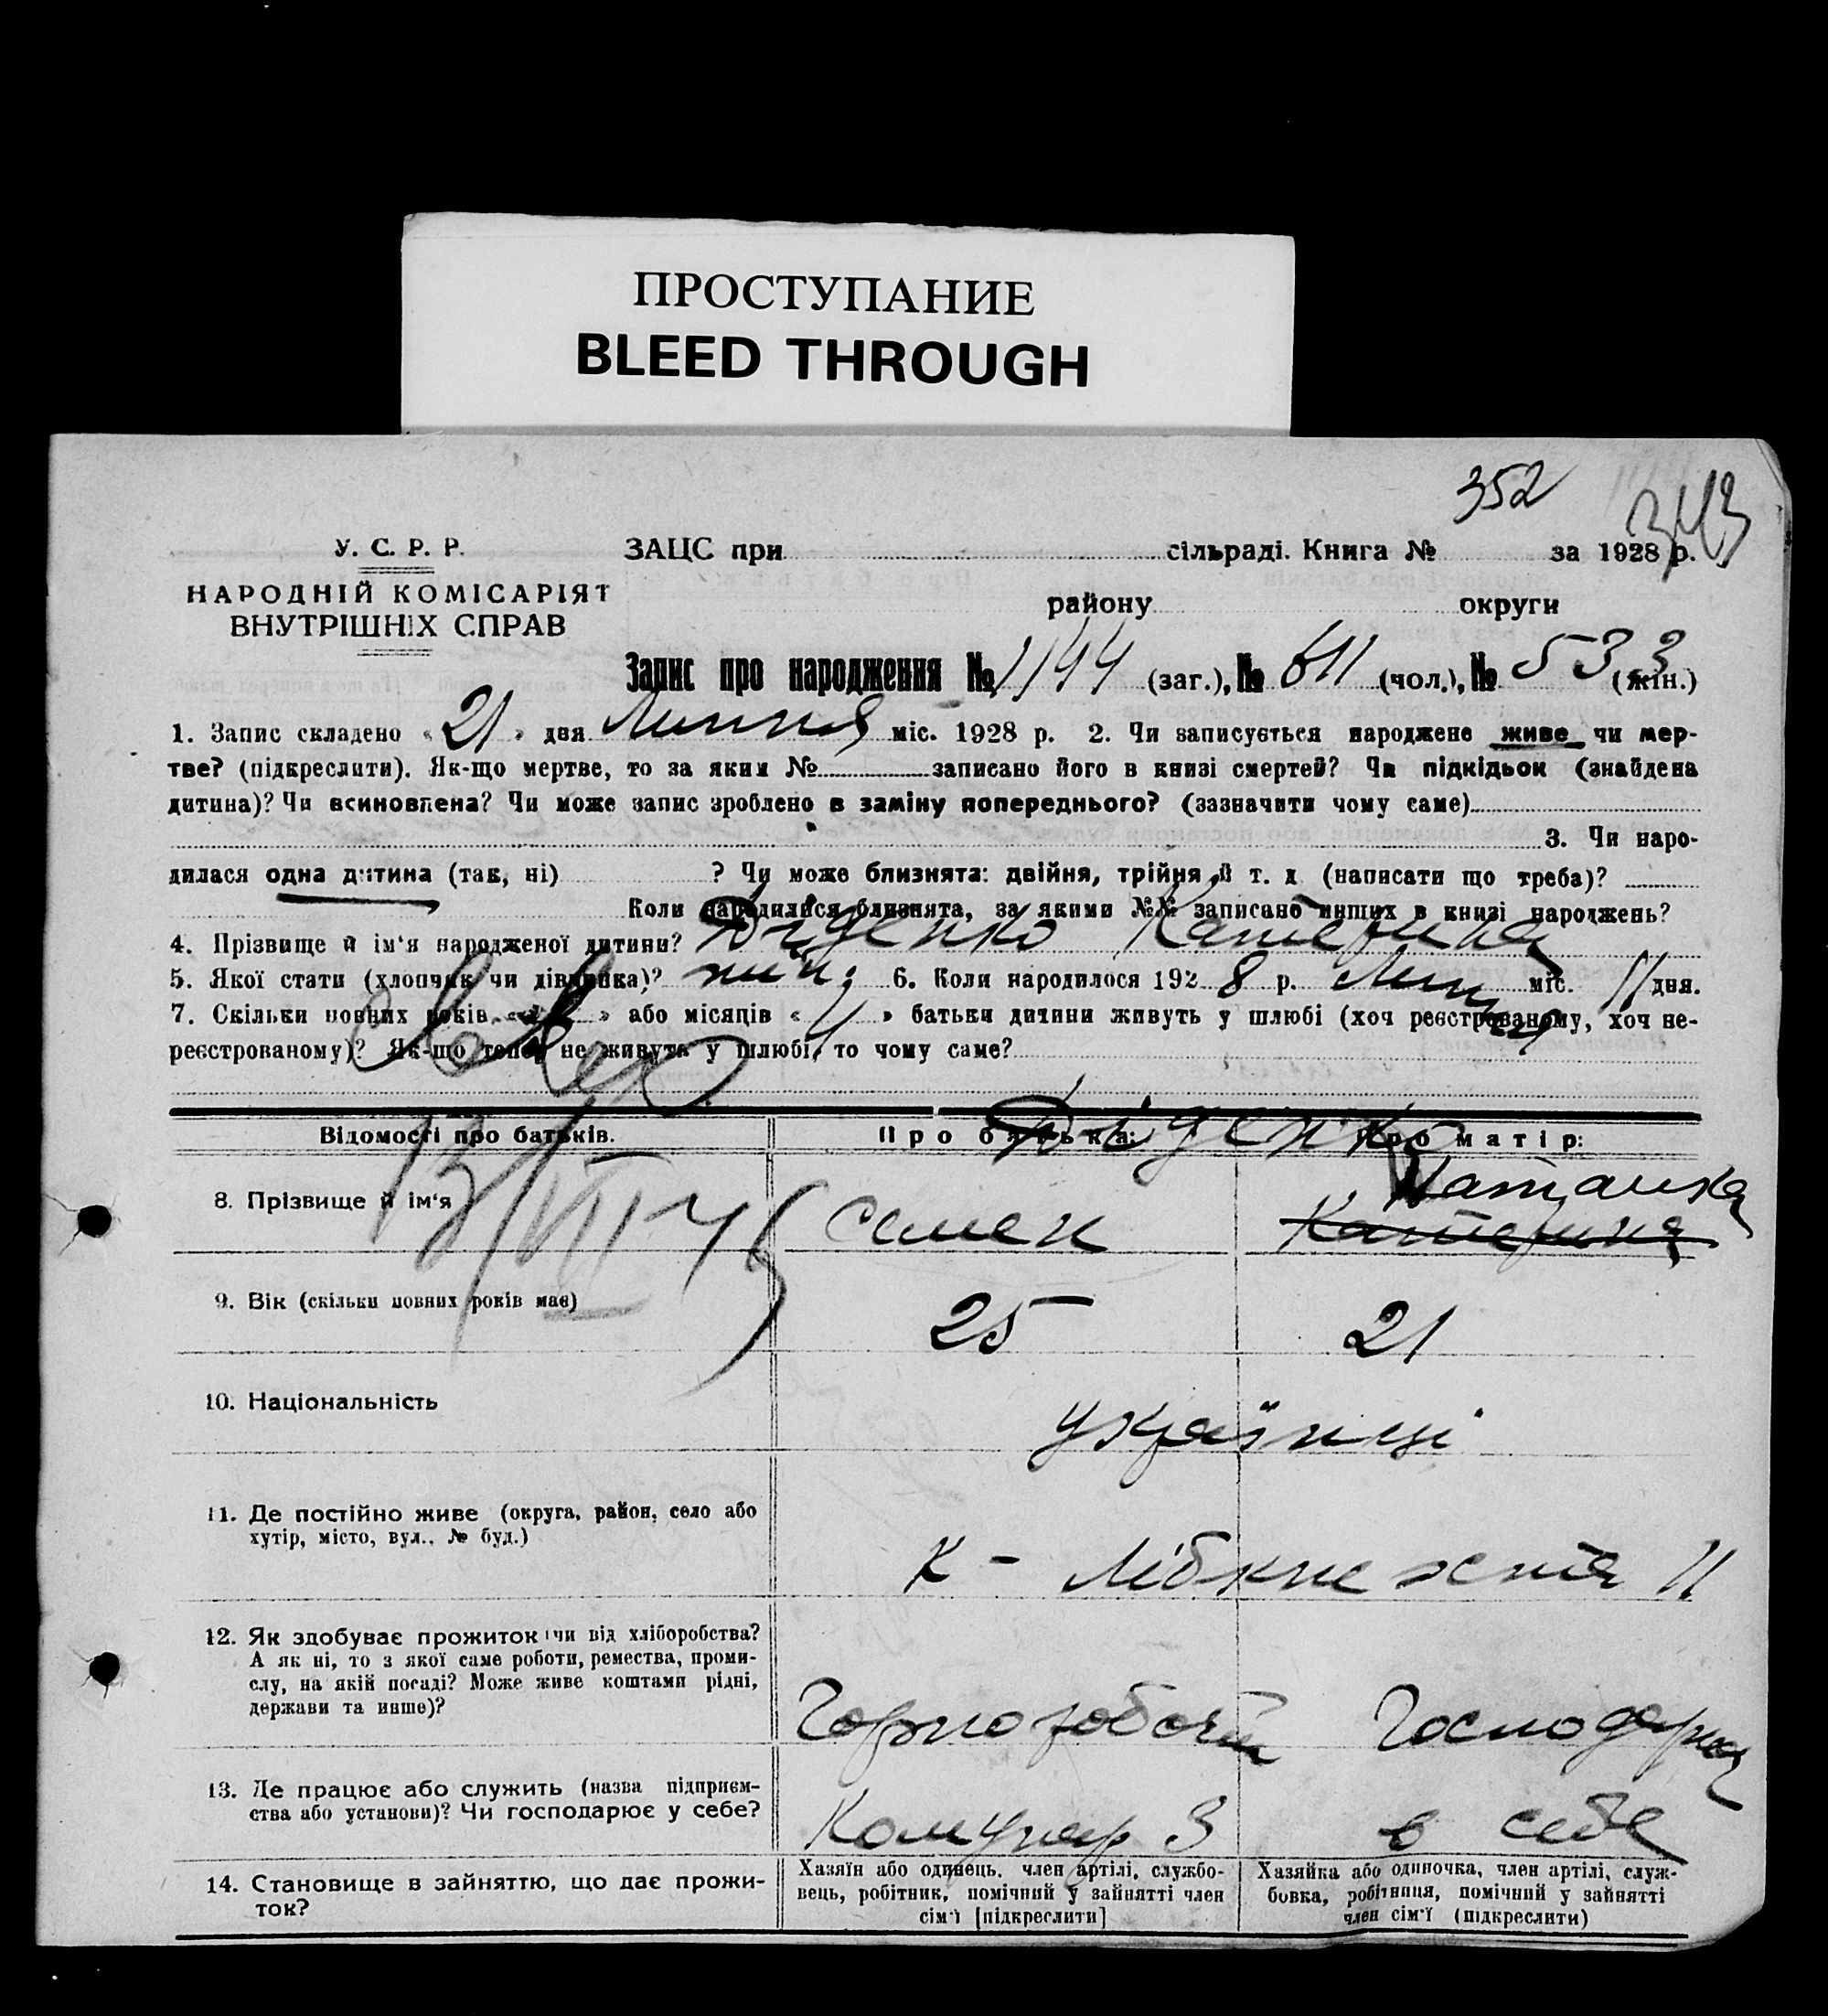 ПРОСТУПАНИЕ
BLEED THROUGH
352
343
У. С. Р. Р.
НАРОДНІЙ КОМІСАРІЯТ
ВНУТРІШНІХ СПРАВ
ЗАЦС при сільраді. Книга № за 1928 р.
району округи
Запис про народження № 1144 (заг.), № 611 (чол.), № 533 (жін.)
1. Запис складено «21» дня Липня міс. 1928 р. 2. Чи записується народжене живе чи мер-
тве? (підкреслити). Як-що мертве, то за яким № записано його в книзі смертей? Чи підкідьок (знайдена
дитина)? Чи всиновлена? Чи може запис зроблено в заміну попереднього? (зазначити чому саме)
3. Чи наро-
дилася одна дитина (так, ні) ? Чи може близнята: двійня, трійня й т. д (написати що треба)?
Коли народилися близнята, за якими №№ записано инших в книзі народжень?
4. Прізвище й ім'я народженої дитини? Діденко Катерина
5. Якої стати (хлопчик чи дівчинка)? жін. 6. Коли народилося 1928 р. Липня міс. 11 дня.
7. Скільки повних років « » або місяців « » батьки дитини живуть у шлюбі (хоч реєстрованому, хоч не-
реєстрованому)? Як-що тепер не живуть у шлюбі, то чому саме?
Діденко
Відомості про батьків. Про батька: Про матір:
Наталка
8. Прізвище й ім'я Семен Катерина
13/VII 45
9. Вік (скільки повних років має) 25 21
10. Національність українці
11. Де постійно живе (округа, район, село або
хутір, місто, вул., № буд.)
К - Лібкнехта 11
12. Як здобуває прожиток (чи від хліборобства?
А як ні, то з якої саме роботи, ремества, проми-
слу, на якій посаді? Може живе коштами рідні,
держави та инше)?
Горноробочий Господарка
13. Де працює або служить (назва підприєм-
ства або установи)? Чи господарює у себе?
Комунар 3 в себе
14. Становище в зайняттю, що дає прожи-
ток?
Хазяїн або одинець, член артілі, службо-
вець, робітник, помічний у зайнятті член
сім'ї [підкреслити]
Хазяйка або одиночка, член артілі, служ-
бовка, робітниця, помічний у зайнятті
член сім'ї (підкреслити)